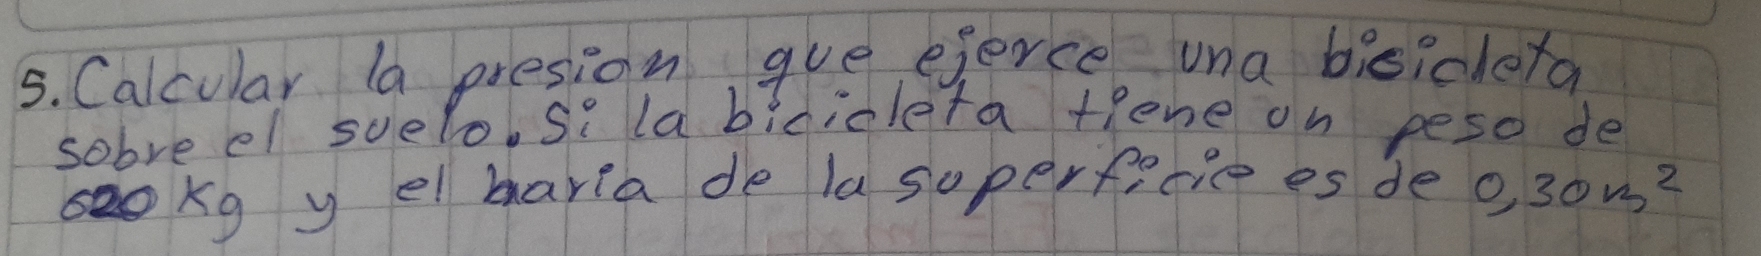 5. Calcular la presion que ejerce una bicicleta
sobre el suelo. Si la bicicleta tiene un peso de
Kg y el haria de la superficie es de 0,30m²